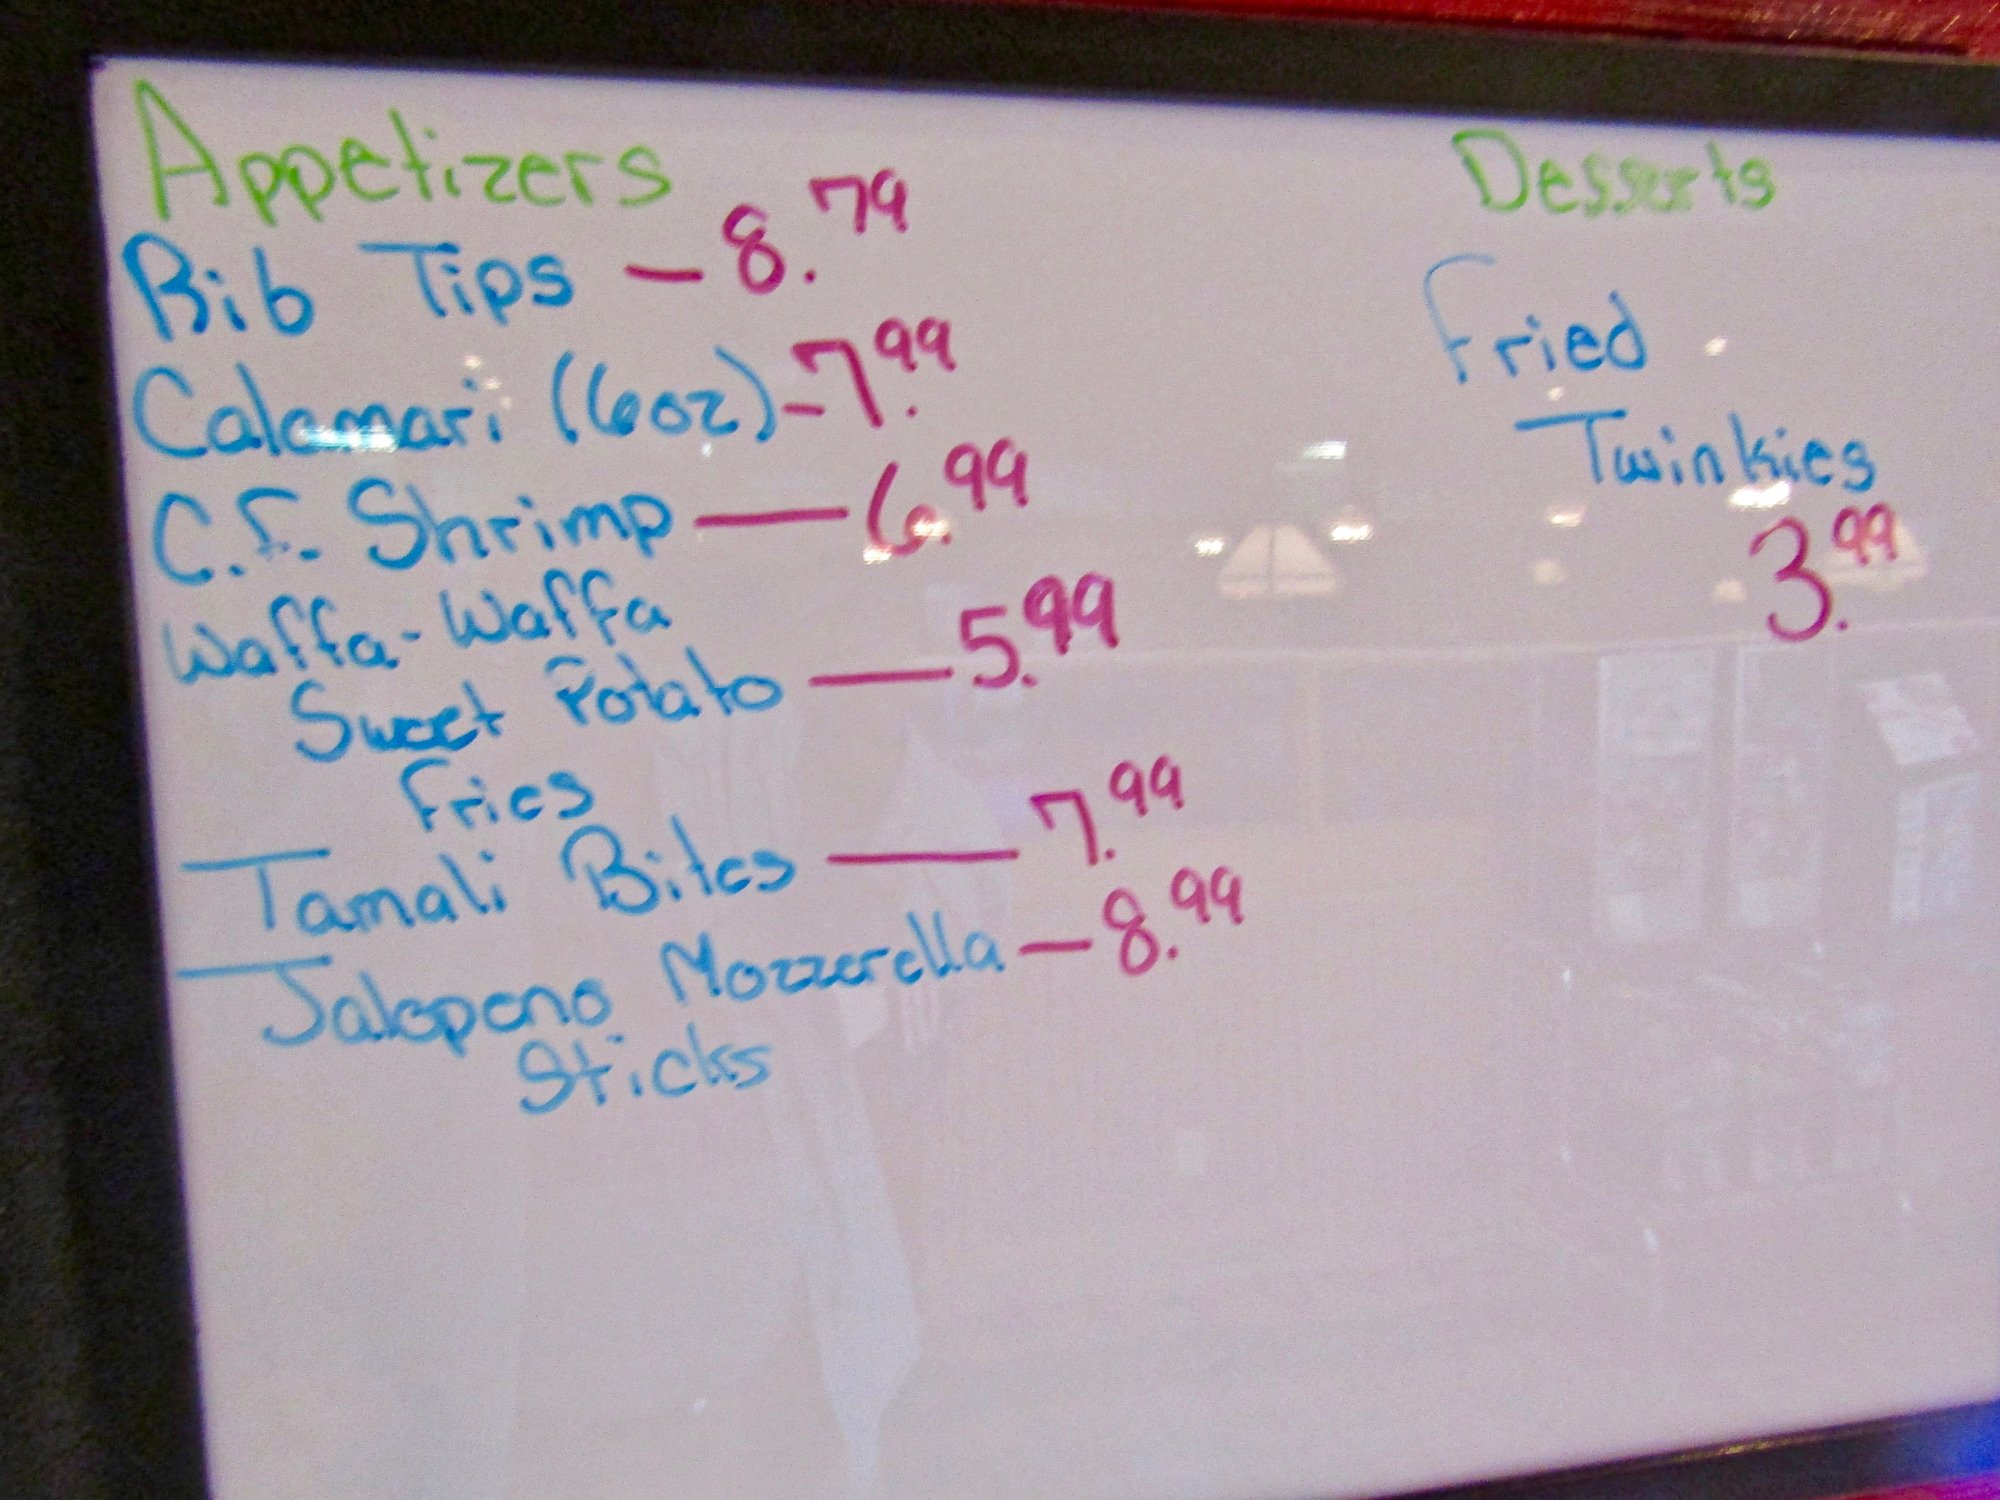 Appetizers
Rib Tips — 8.79
Calamari (6oz) - 7.99
C.F. Shrimp — 6.99
Waffa-Waffa
Sweet Potato — 5.99
Fries
Tamali Bites — 7.99
Jalapeno Mozzerella — 8.99
Sticks
Desserts
Fried
Twinkies
3.99